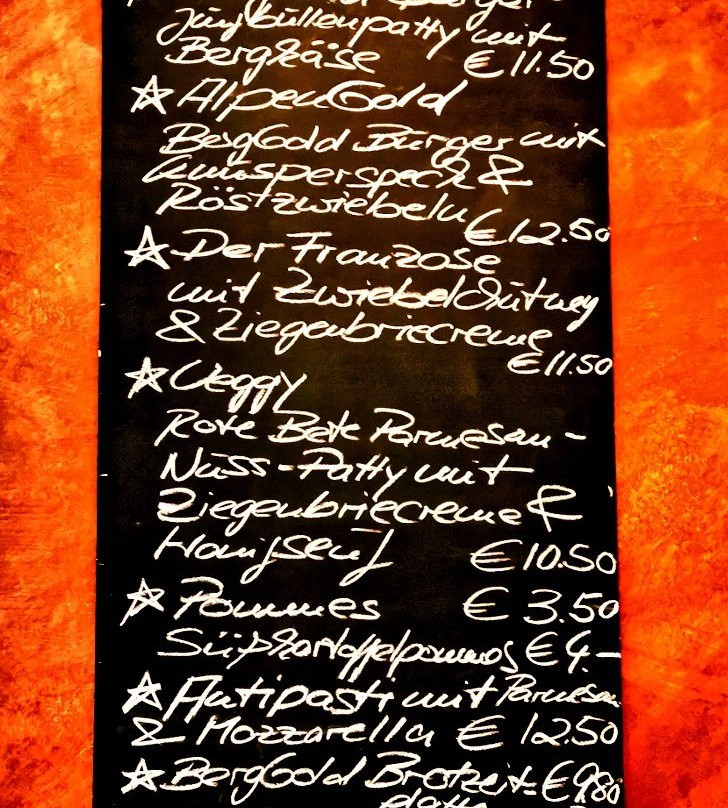 Burger
Jungbullenpatty mit
Bergkäse € 11.50
☆ AlpenGold
BergGold Burger mit
Knusperspeck &
Röstzwiebeln € 12.50
☆ Der Franzose
mit Zwiebelchutney
& Ziegenbriecreme
€ 11.50
☆ Veggy
Rote Bete Parmesan -
Nuss - Patty mit
Ziegenbriecreme &
Honigsenf € 10.50
☆ Pommes € 3.50
Süßkartoffelpommes € 4.-
☆ Antipasti mit Parmesan
& Mozzarella € 12.50
☆ BergGold Brotzeit- € 9.80
platte